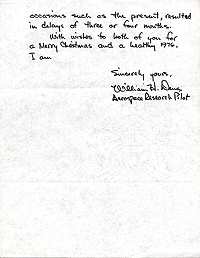 occasions such as the present, resulted
in delays of three or four months.
With wishes to both of you for
a Merry Christmas and a healthy 1976,
I am
Sincerely yours,
William H. Dana
Aerospace Research Pilot